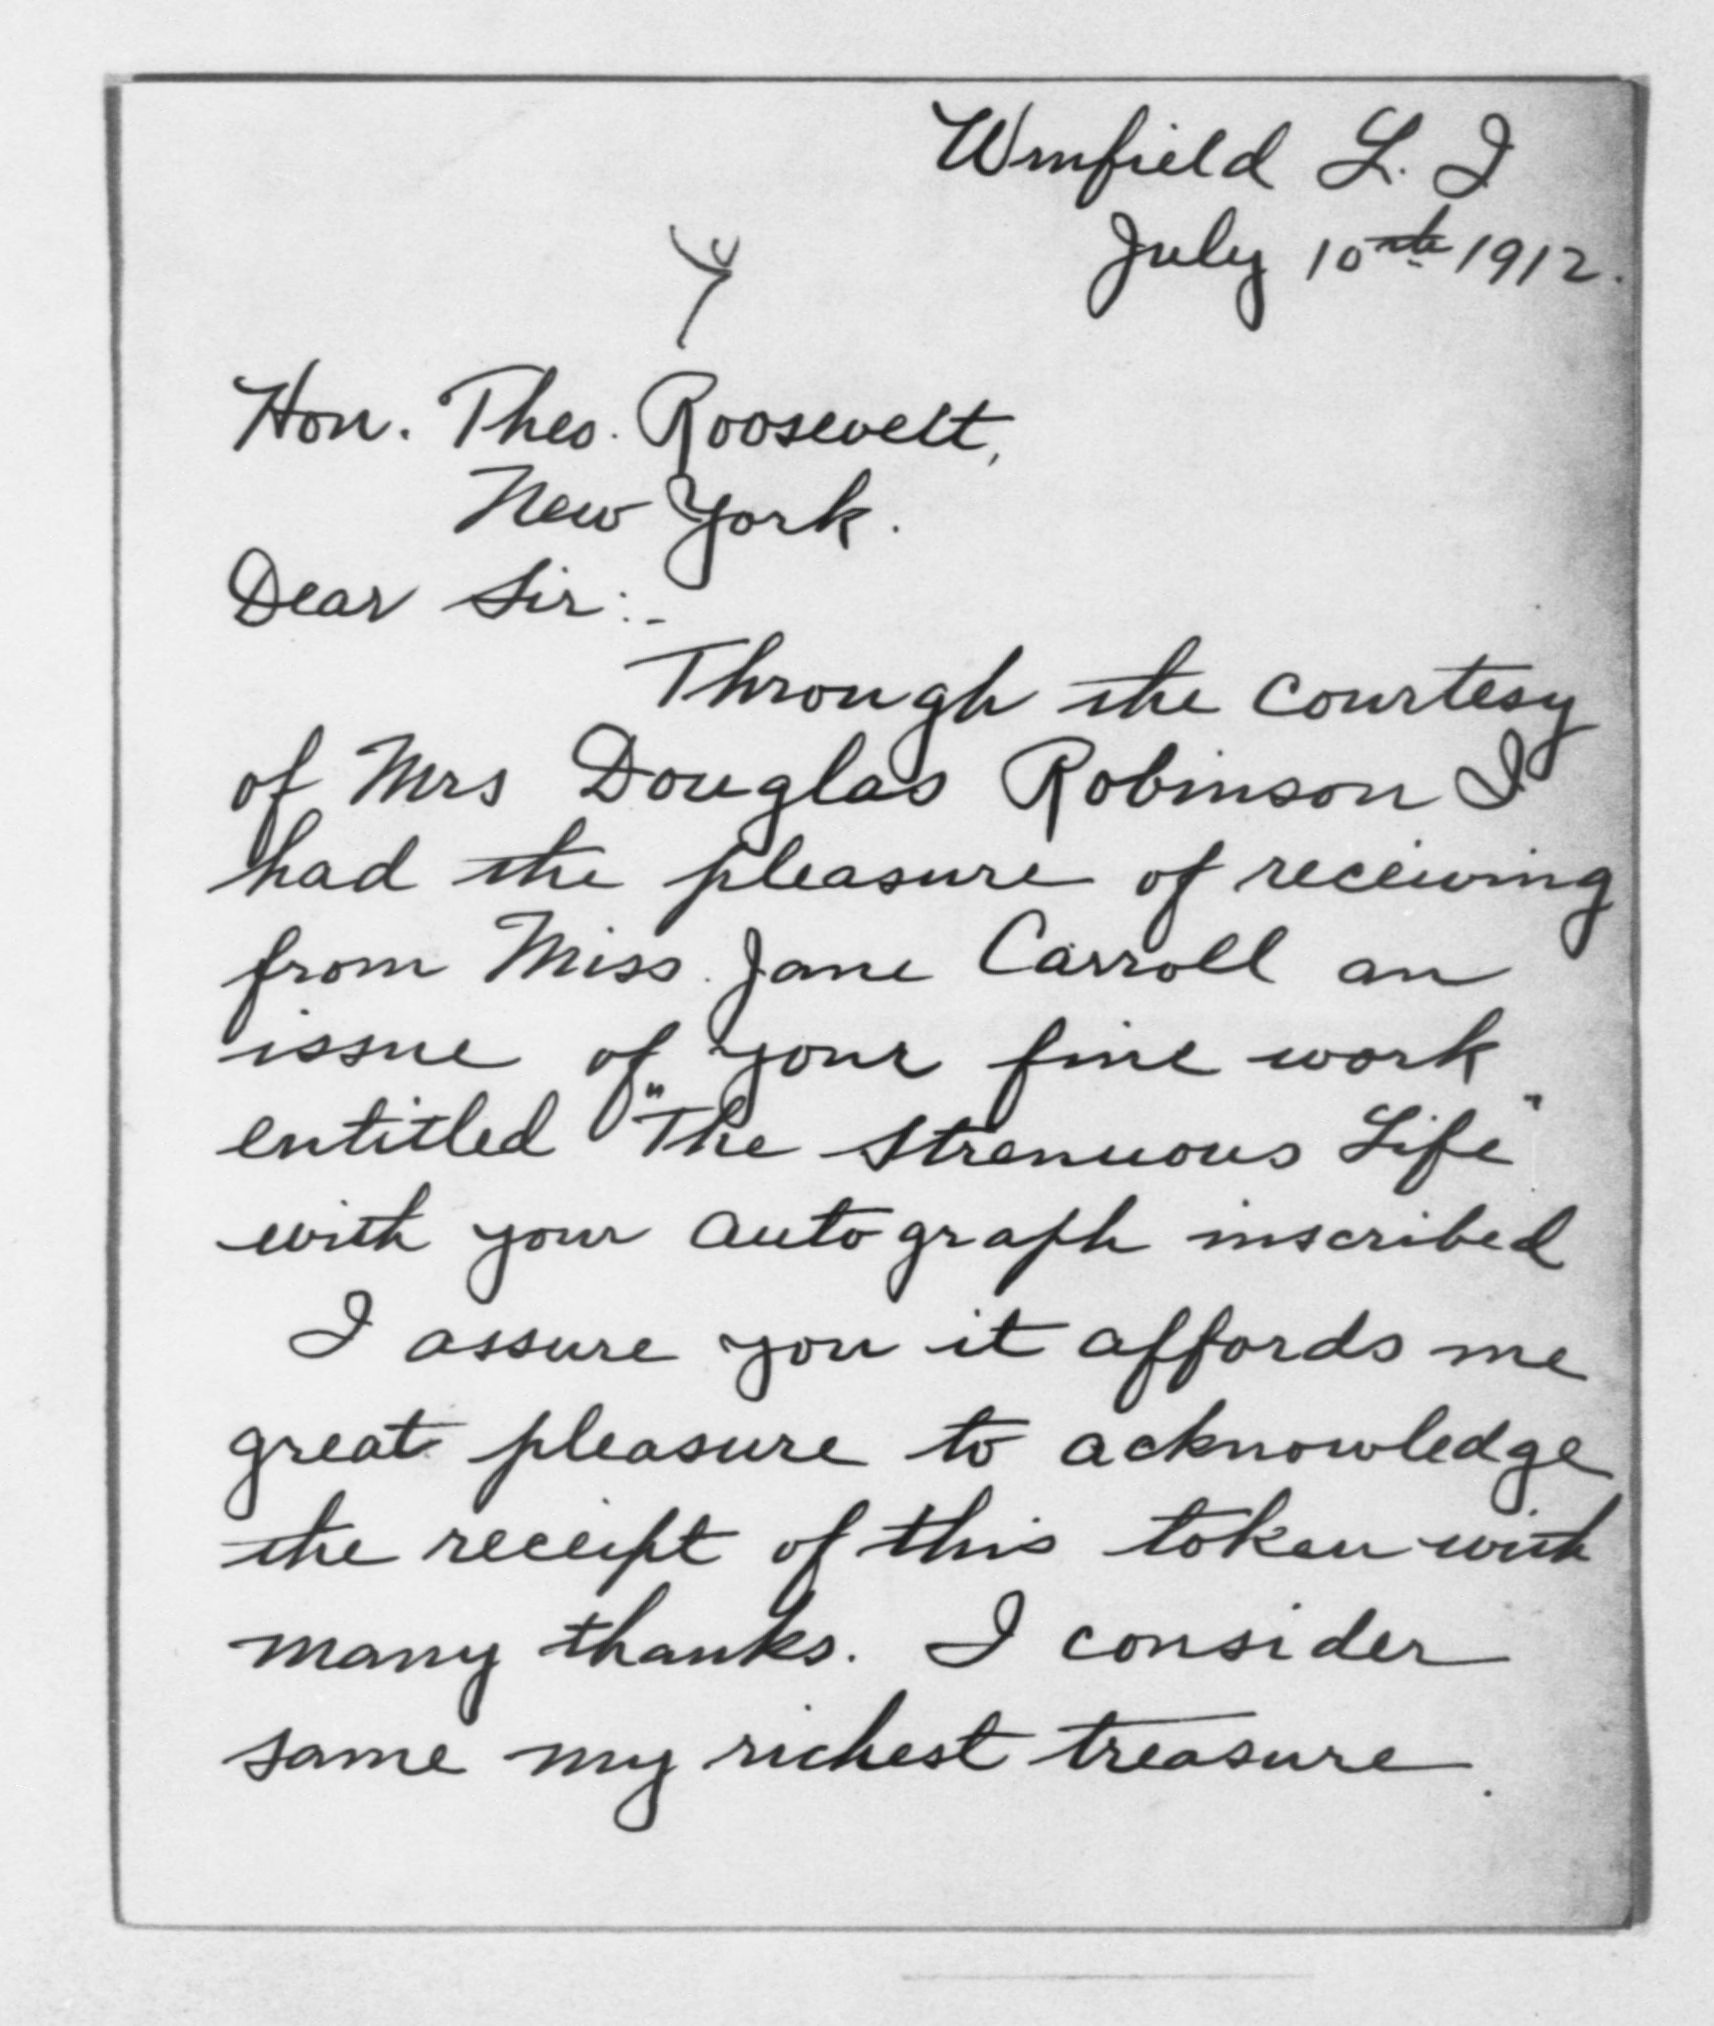 Winfield L. I
July 10th 1912.
Hon. Theo. Roosevelt,
New York.
Dear Sir:-
Through the courtesy
of Mrs Douglas Robinson I
had the pleasure of receiving
from Miss Jane Carroll an
issue of your fine work
entitled "The Strenuous Life"
with your autograph inscribed
I assure you it affords me
great pleasure to acknowledge
the receipt of this token with
many thanks. I consider
same my richest treasure.